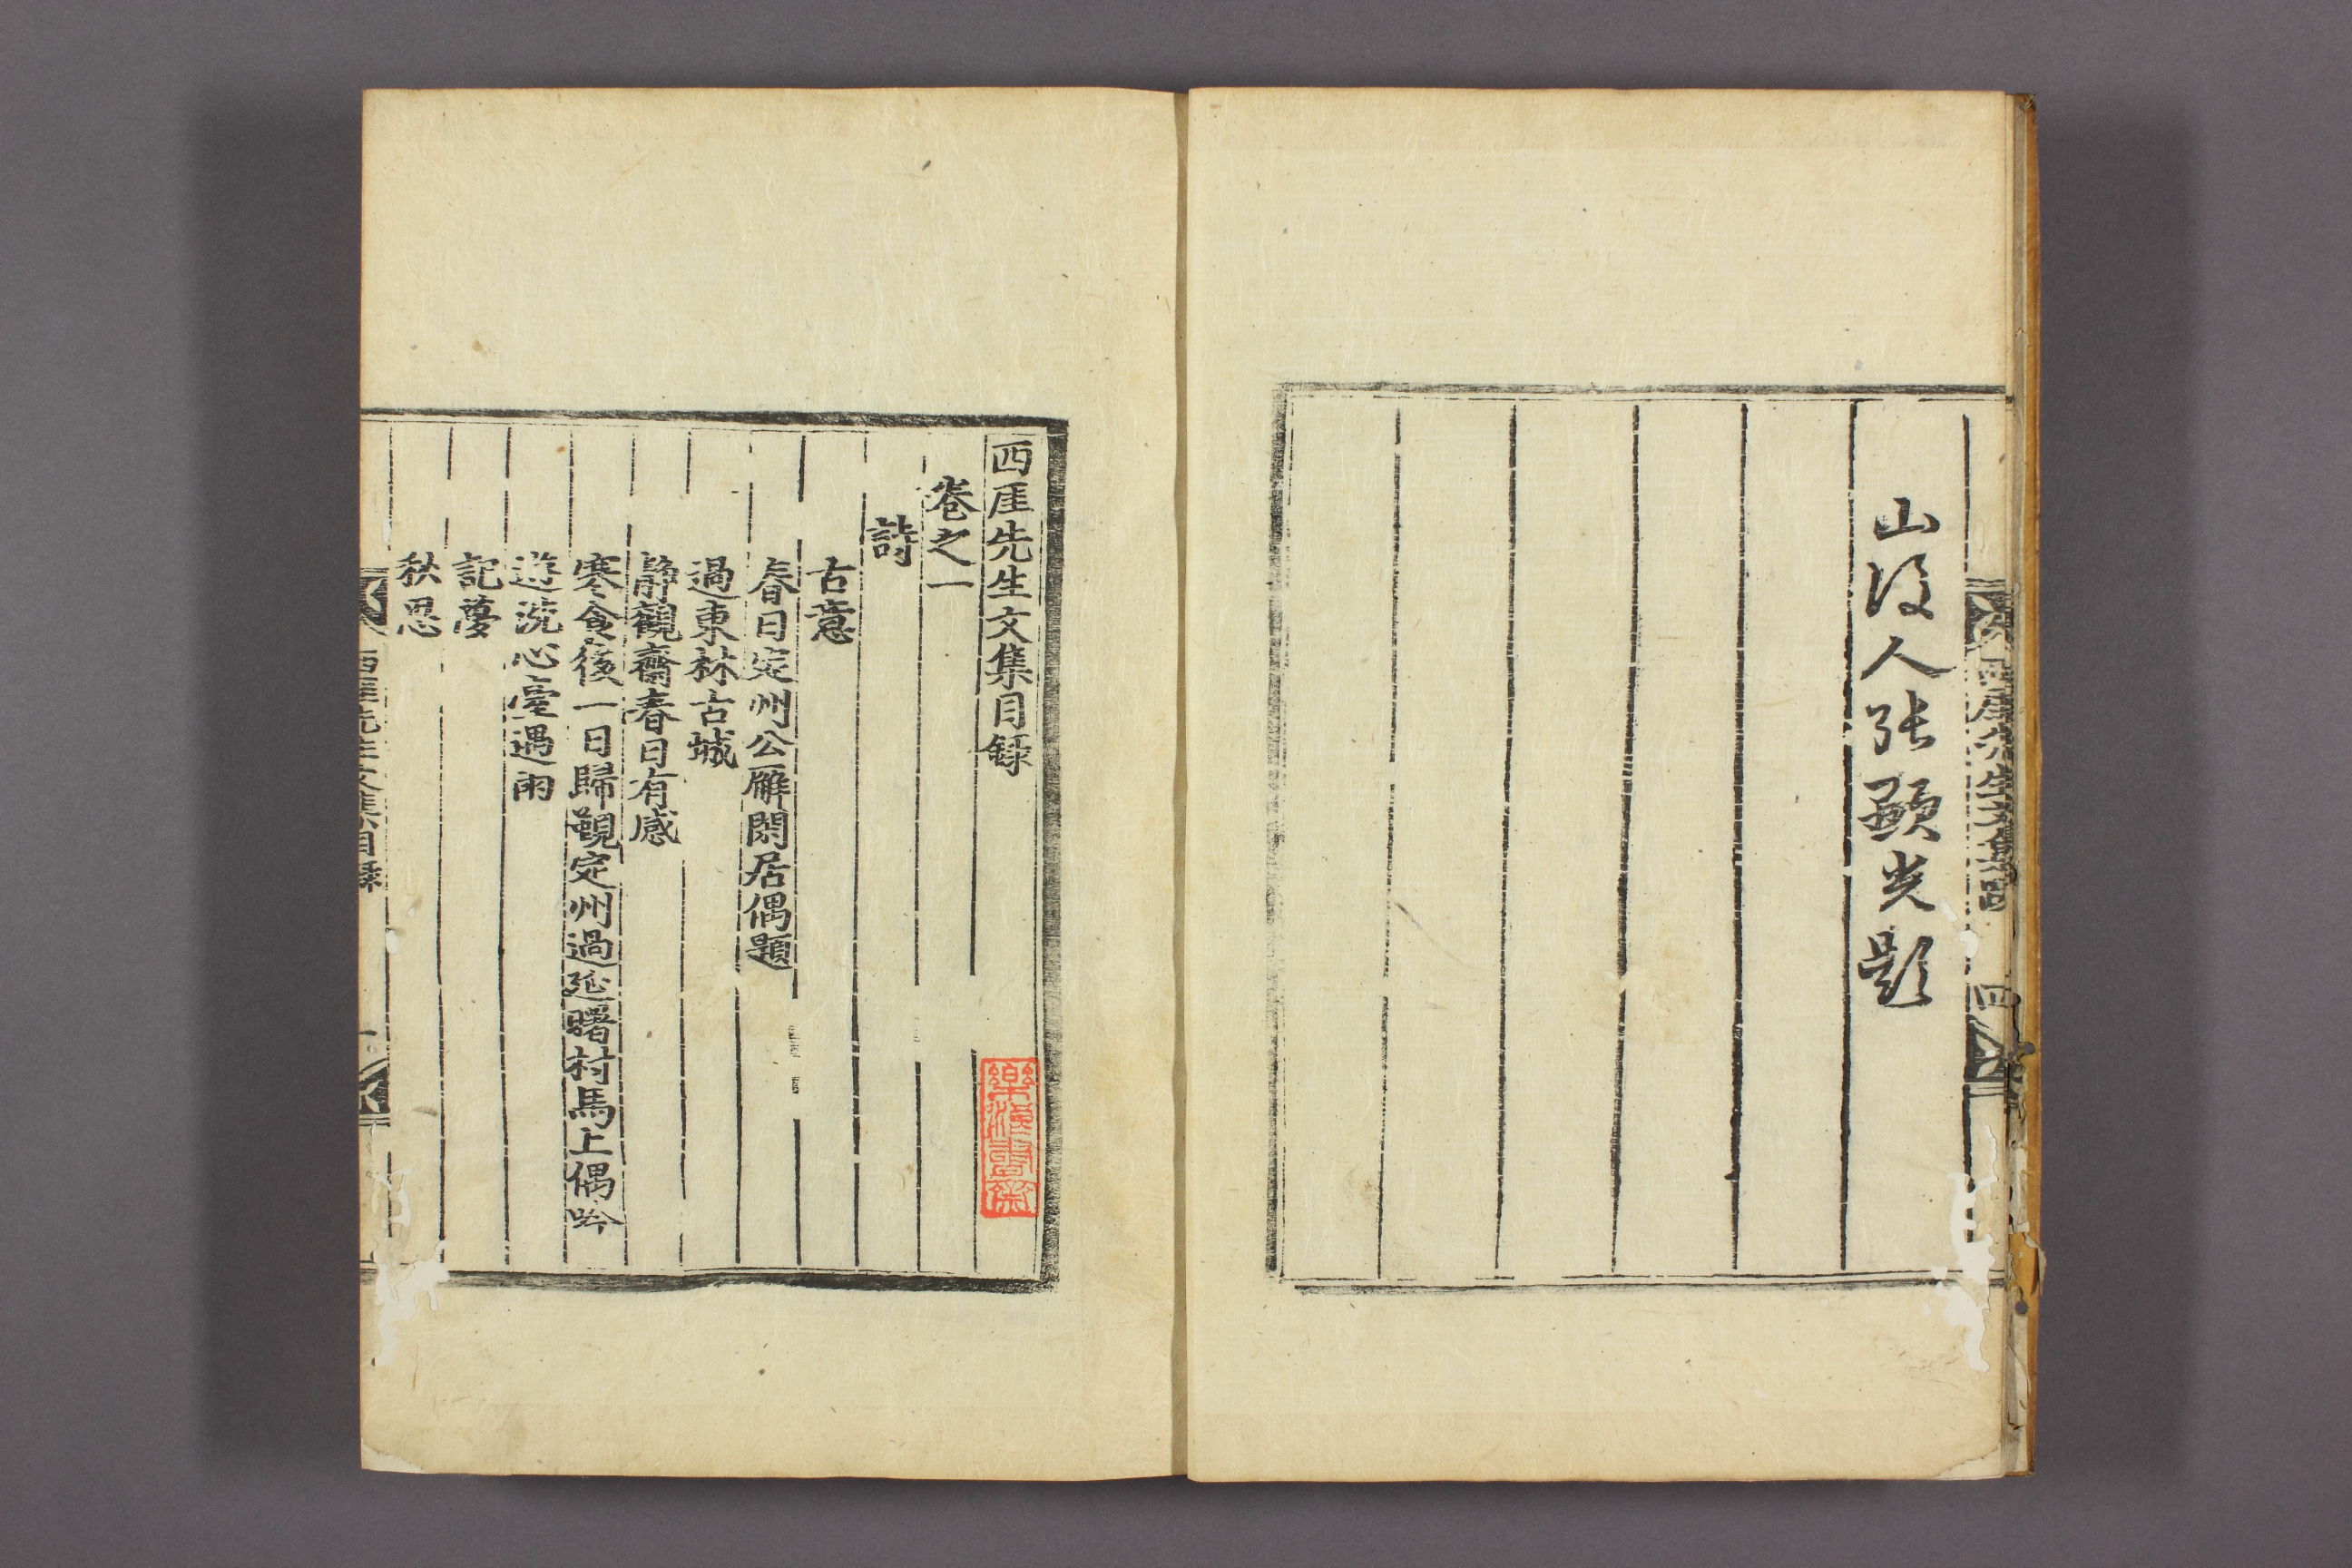 西厓先生文集跋 四
山後人張顯光題
西厓先生文集目録
卷之一
詩
古意
春日定州公廨閑居偶題
過東林古城
靜觀齋春日有感
寒食後一日歸覲定州過延曙村馬上偶吟
遊洗心臺遇雨
記夢
秋思
西厓先生文集目録 一
樂浪書齋